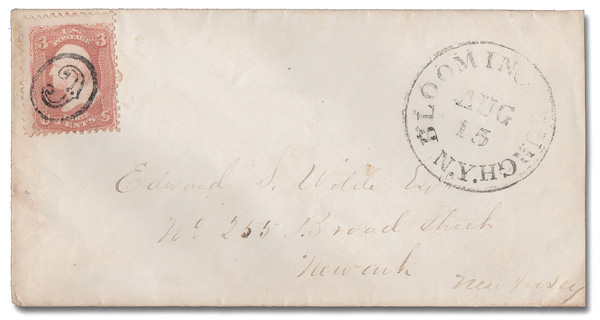 3 U.S. 3
POSTAGE
CENTS
BLOOMIN URGH.N.Y.
AUG
15
Edward S. Wilde Esq
No 255 Broad Street
Newark
New Jersey